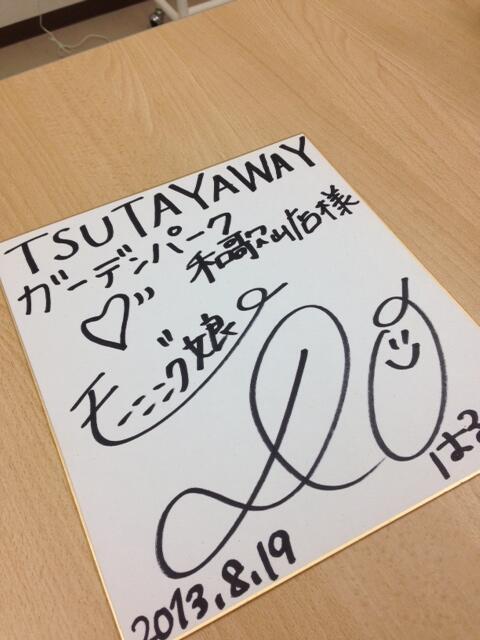 TSUTAYAWAY
ガーデンパーク
和歌山店様
モーニング娘。
はる
2013.8.19